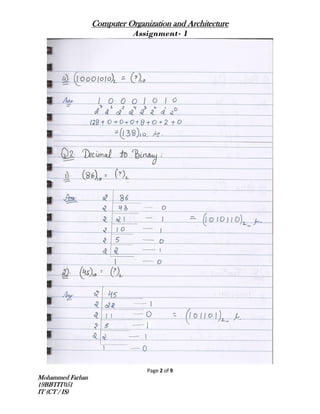 Computer Organization and Architecture
Assignment- 1
a) (10001010)₂ = (?)₁₀
Ans 1 0 0 0 1 0 1 0
2⁷ 2⁶ 2⁵ 2⁴ 2³ 2² 2¹ 2⁰
128 + 0 + 0 + 0 + 8 + 0 + 2 + 0
= (138)₁₀
Q2 Decimal to Binary:
1) (86)₁₀ = (?)₂
Ans 2 86
2 43 — 0
2 21 — 1 = (1010110)₂
2 10 — 1
2 5 — 0
2 2 — 1
1 — 0
2) (45)₁₀ = (?)₂
Ans 2 45
2 22 — 1
2 11 — 0 = (101101)₂
2 5 — 1
2 2 — 1
1 — 0
Page 2 of 9
Mohammed Farhan
19BBTIT051
IT (CT / IS)